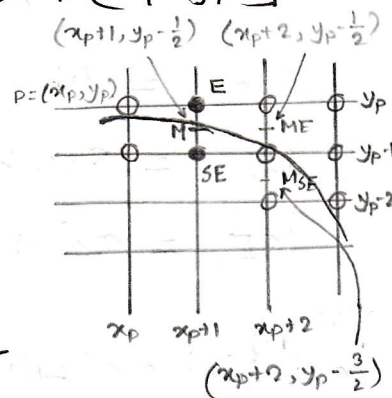 (xₚ+1, yₚ-½) (xₚ+2, yₚ-½)
P=(xₚ,yₚ) E yₚ
M ME
yₚ-1
SE MSE
yₚ-2
xₚ xₚ+1 xₚ+2
(xₚ+2, yₚ-3/2)